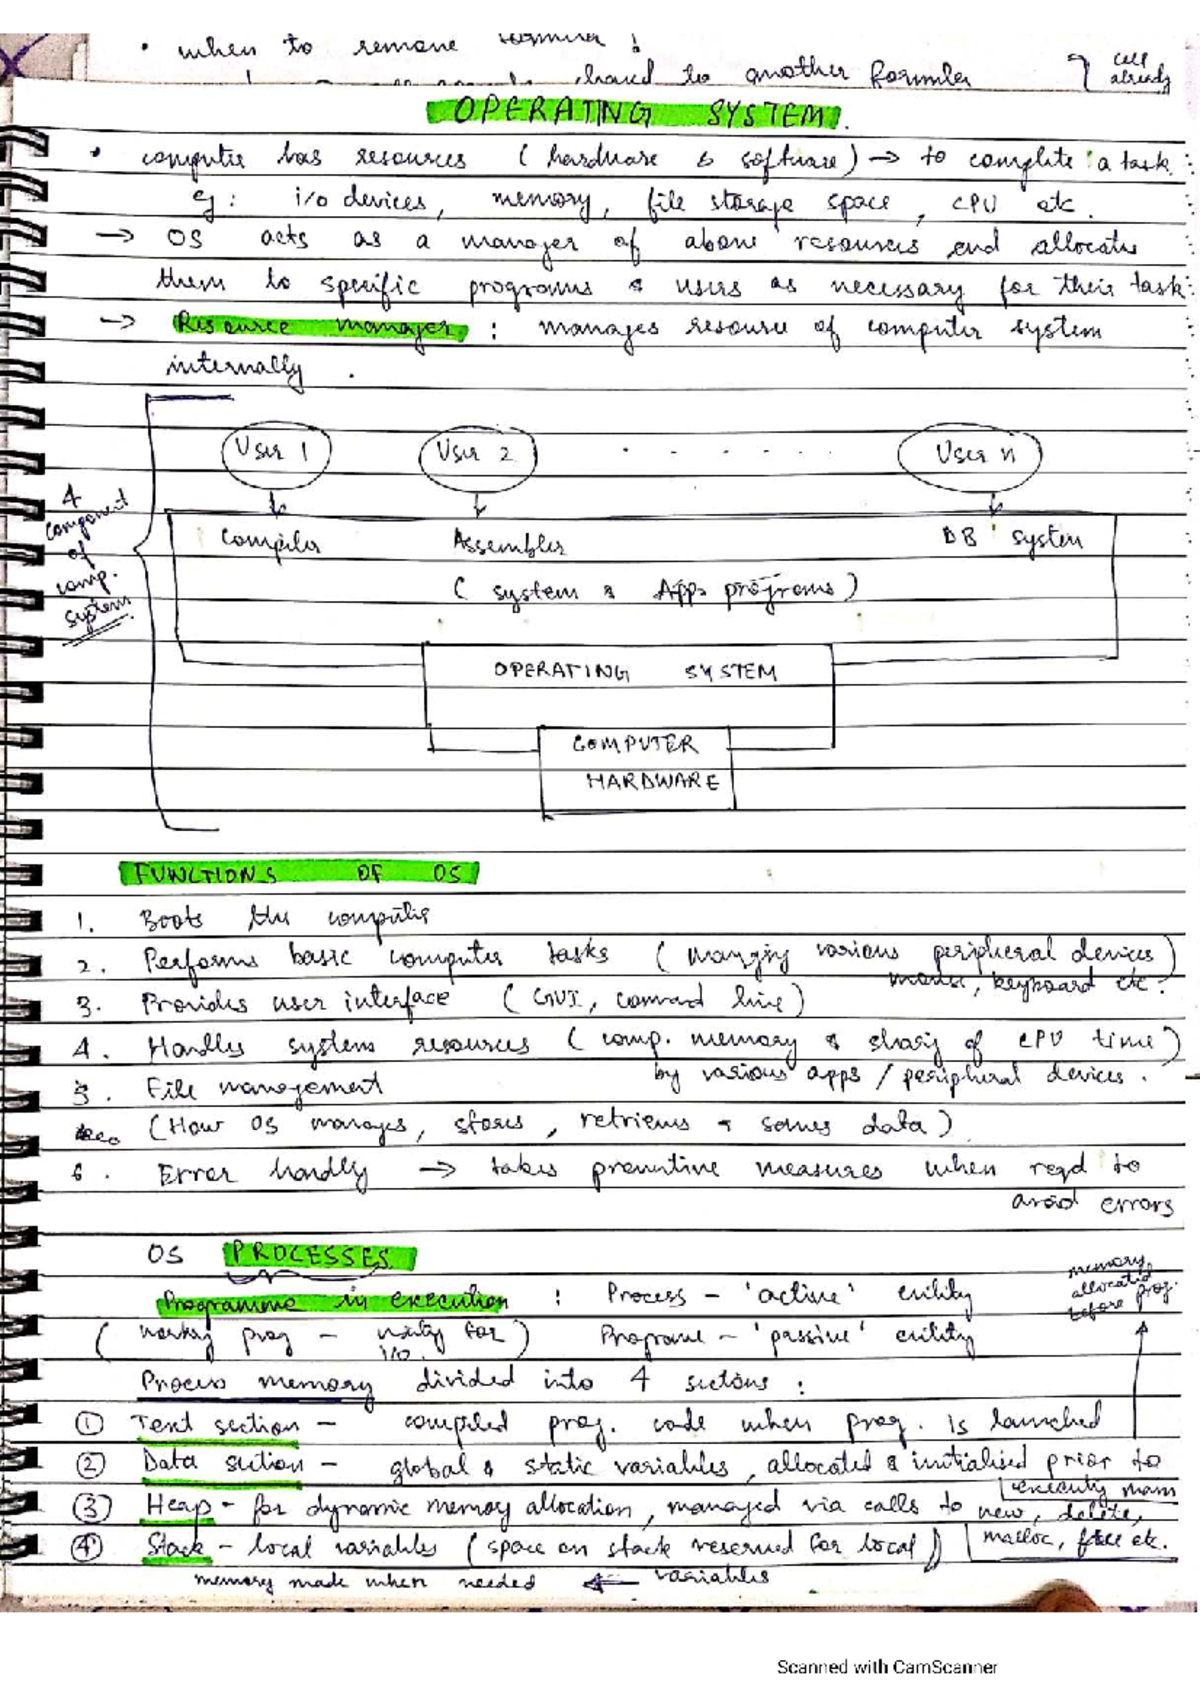 • when to remove
shared to another formula
cell
already
OPERATING SYSTEM.
• computer has resources (hardware & software) → to complete a task.
eg: i/o devices, memory, file storage space, CPU etc.
→ OS acts as a manager of above resources and allocates
them to specific programs & users as necessary for their task.
→ Resource manager : manages resource of computer system
internally .
User 1 User 2 . . . . . . . User n
4
component
of
comp.
system
Compiler Assembler DB system
( system & App. programs )
OPERATING SYSTEM
COMPUTER
HARDWARE
FUNCTIONS OF OS
1. Boots the computer
2. Performs basic computer tasks ( managing various peripheral devices)
mouse, keyboard etc.
3. Provides user interface ( GUI, command line)
4. Handles system resources ( comp. memory & sharing of CPU time)
by various apps / peripheral devices.
5. File management
(How OS manages, stores, retrieves & saves data)
6. Error handling → takes preventive measures when reqd to
avoid errors
OS PROCESSES
memory
allocation
before prog.
Programme in execution : Process - 'active' entity
( working prog - waiting for ) Programe - 'passive' entity
i/o
Process memory divided into 4 sections :
① Text section - compiled prog. code when prog. is launched
② Data section - global & static variables, allocated & initialised prior to
executing main
③ Heap - for dynamic memory allocation, managed via calls to new, delete,
malloc, free etc.
④ Stack - local variables (space on stack reserved for local)
variables
memory made when needed ←
Scanned with CamScanner